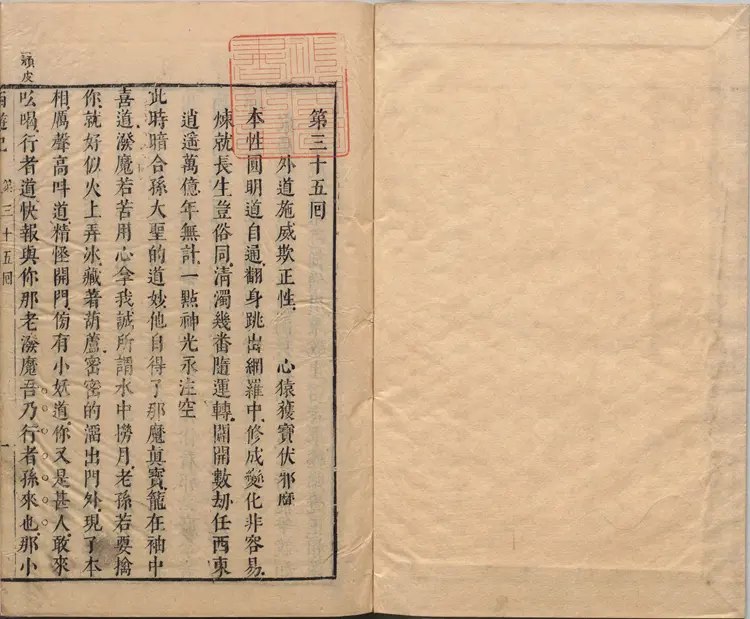 第三十五回
外道施威欺正性 心猿獲寶伏邪魔
本性圓明道自通.翻身跳出網羅中.修成變化非容易.
煉就長生豈俗同.清濁幾番隨運轉.闢開數刼任西東
逍遥萬億年無計.一點神光永注空
此時暗合孫大聖的道妙他自得了那魔真寶.籠在袖中
喜道潑魔若苦用心拿我.誠所謂水中撈月.老孫若要擒
你.就好似火上弄冰.藏着葫蘆密密的溜出門外.現了本
相厲聲高呌道.精怪開門.傍有小妖道.你又是甚人.敢來
吆喝.行者道快報與你那老潑魔吾乃行者孫來也.那小
頑皮
西遊記 第三十五回 一